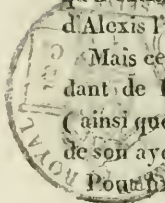 d'Alexis P
Mais ce
dant de
(ainsi que
de son aye
ROYAL